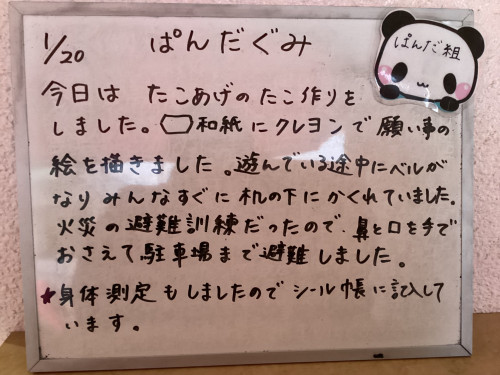 1/20 ぱんだぐみ
ぱんだ組
今日は たこあげのたこ作りを
しました。和紙にクレヨンで願い事の
絵を描きました。遊んでいる途中にベルが
なりみんなすぐに机の下にかくれていました。
火災の避難訓練だったので、鼻と口を手で
おさえて駐車場まで避難しました。
★身体測定もしましたのでシール帳に記入して
います。